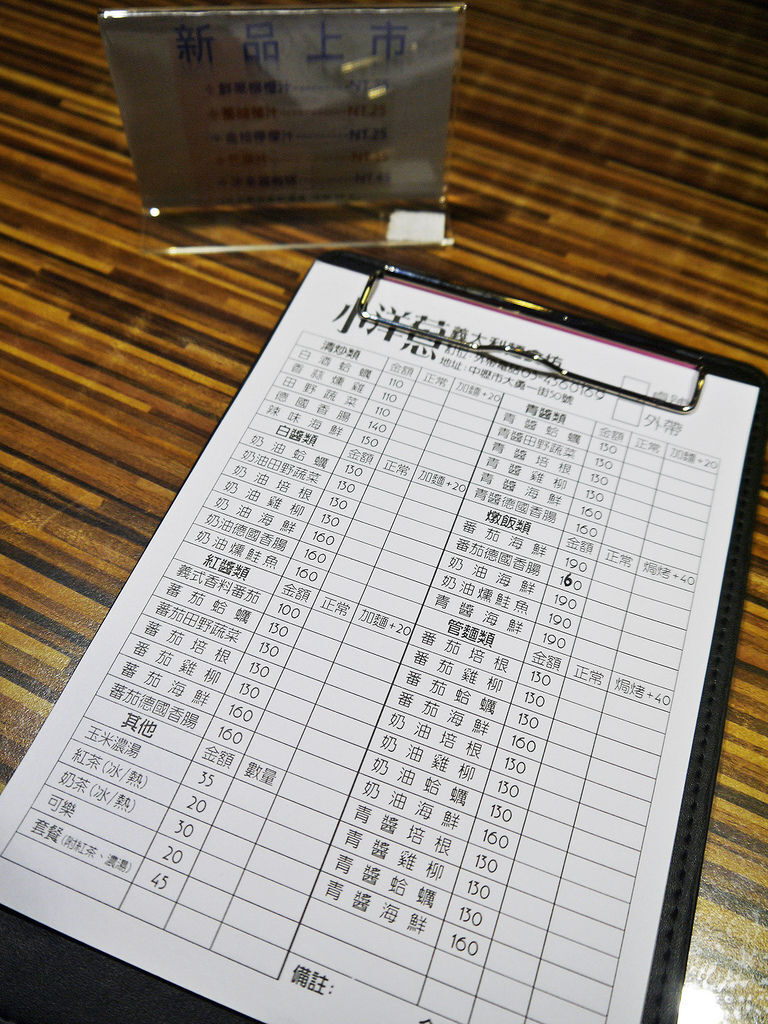 新品上市
NT.25
小洋蔥 義大利麵食坊
地址：中壢市大勇一街50號
外帶
清炒類 金額 正常 加麵+20
白酒蛤蠣 110
香蒜燻雞 110
田野蔬菜 110
德國香腸 140
辣味海鮮 150
白醬類 金額 正常 加麵+20
奶油蛤蠣 130
奶油田野蔬菜 130
奶油培根 130
奶油雞柳 130
奶油海鮮 160
奶油德國香腸 160
奶油燻鮭魚 160
紅醬類 金額 正常 加麵+20
義式香料番茄 100
番茄蛤蠣 130
番茄田野蔬菜 130
番茄培根 130
番茄雞柳 130
番茄海鮮 160
番茄德國香腸 160
其他 金額 數量
玉米濃湯 35
紅茶(冰/熱) 20
奶茶(冰/熱) 30
可樂 20
套餐(附紅茶、濃湯) 45
青醬類 金額 正常 加麵+20
青醬蛤蠣 130
青醬田野蔬菜 130
青醬培根 130
青醬雞柳 130
青醬海鮮 160
青醬德國香腸 160
燉飯類 金額 正常 焗烤+40
番茄海鮮 190
番茄德國香腸 160
奶油海鮮 190
奶油燻鮭魚 190
青醬海鮮 190
管麵類 金額 正常 焗烤+40
番茄培根 130
番茄雞柳 130
番茄蛤蠣 130
番茄海鮮 160
奶油培根 130
奶油雞柳 130
奶油蛤蠣 130
奶油海鮮 160
青醬培根 130
青醬雞柳 130
青醬蛤蠣 130
青醬海鮮 160
備註：